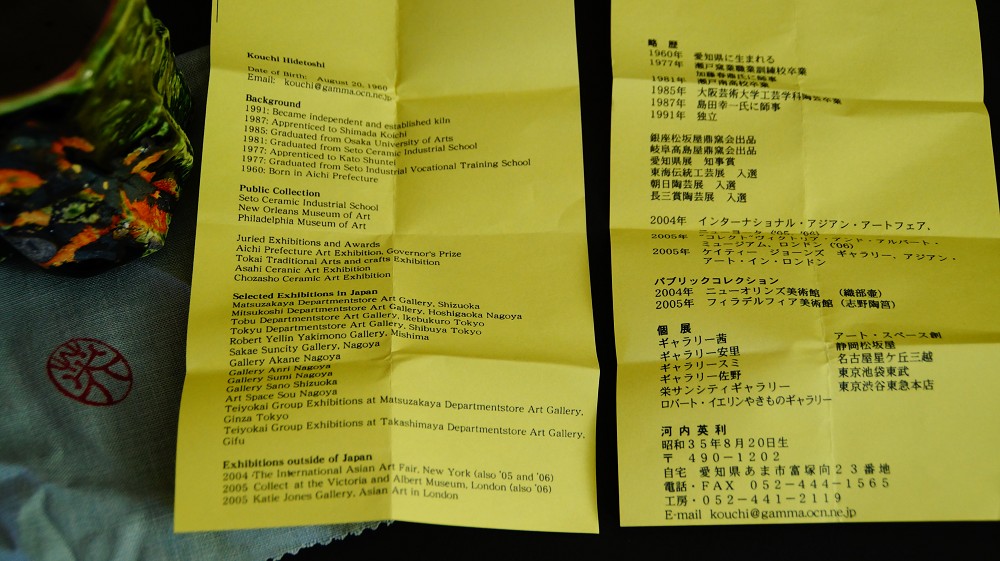 Kouchi Hidetoshi
Date of Birth: August 20, 1960
Email: kouchi@gamma.ocn.ne.jp
Background
1991: Became independent and established kiln
1987: Apprenticed to Shimada Koichi
1985: Graduated from Osaka University of Arts
1981: Graduated from Seto Ceramic Industrial School
1977: Apprenticed to Kato Shuntei
1977: Graduated from Seto Industrial Vocational Training School
1960: Born in Aichi Prefecture
Public Collection
Seto Ceramic Industrial School
New Orleans Museum of Art
Philadelphia Museum of Art
Juried Exhibitions and Awards
Aichi Prefecture Art Exhibition, Governor's Prize
Tokai Traditional Arts and crafts Exhibition
Asahi Ceranic Art Exhibition
Chozasho Ceramic Art Exhibition
Selected Exhibitions in Japan
Matsuzakaya Departmentstore Art Gallery, Shizuoka
Mitsukoshi Departmentstore Art Gallery, Hoshigaoka Nagoya
Tobu Departmentstore Art Gallery, Ikebukuro Tokyo
Tokyu Departmentstore Art Gallery, Shibuya Tokyo
Robert Yellin Yakimono Gallery, Mishima
Sakae Suncity Gallery, Nagoya
Gallery Akane Nagoya
Gallery Anri Nagoya
Gallery Sumi Nagoya
Gallery Sano Shizuoka
Art Space Sou Nagoya
Teiyokai Group Exhibitions at Matsuzakaya Departmentstore Art Gallery,
Ginza Tokyo
Teiyokai Group Exhibitions at Takashimaya Departmentstore Art Gallery,
Gifu
Exhibitions outside of Japan
2004 /The International Asian Art Fair, New York (also '05 and '06)
2005 Collect at the Victoria and Albert Museum, London (also '06)
2005 Katie Jones Gallery, Asian Art in London
略 歴
1960年 愛知県に生まれる
1977年 瀬戸窯業職業訓練校卒業
加藤春鼎氏に師事
1981年 瀬戸窯高校卒業
1985年 大阪芸術大学工芸学科陶芸卒業
1987年 島田幸一氏に師事
1991年 独立
銀座松坂屋鼎窯会出品
岐阜高島屋鼎窯会出品
愛知県展 知事賞
東海伝統工芸展 入選
朝日陶芸展 入選
長三賞陶芸展 入選
2004年 インターナショナル・アジアン・アートフェア,
ニューヨーク ('05, '06)
2005年 "コレクト"ヴィクトリア・アンド・アルバート・
ミュージアム, ロンドン ('06)
2005年 ケイティー ジョーンズ ギャラリー, アジアン・
アート・イン・ロンドン
パブリックコレクション
2004年 ニューオリンズ美術館 (織部壷)
2005年 フィラデルフィア美術館 (志野陶筥)
個 展
ギャラリー茜 アート・スペース創
ギャラリー安里 静岡松坂屋
ギャラリースミ 名古屋星ケ丘三越
ギャラリー佐野 東京池袋東武
栄サンシティギャラリー 東京渋谷東急本店
ロバート・イエリンやきものギャラリー
河 内 英 利
昭和35年8月20日生
〒 490-1202
自宅 愛知県あま市富塚向23番地
電話・FAX 052-444-1565
工房・052-441-2119
E-mail kouchi@gamma.ocn.ne.jp